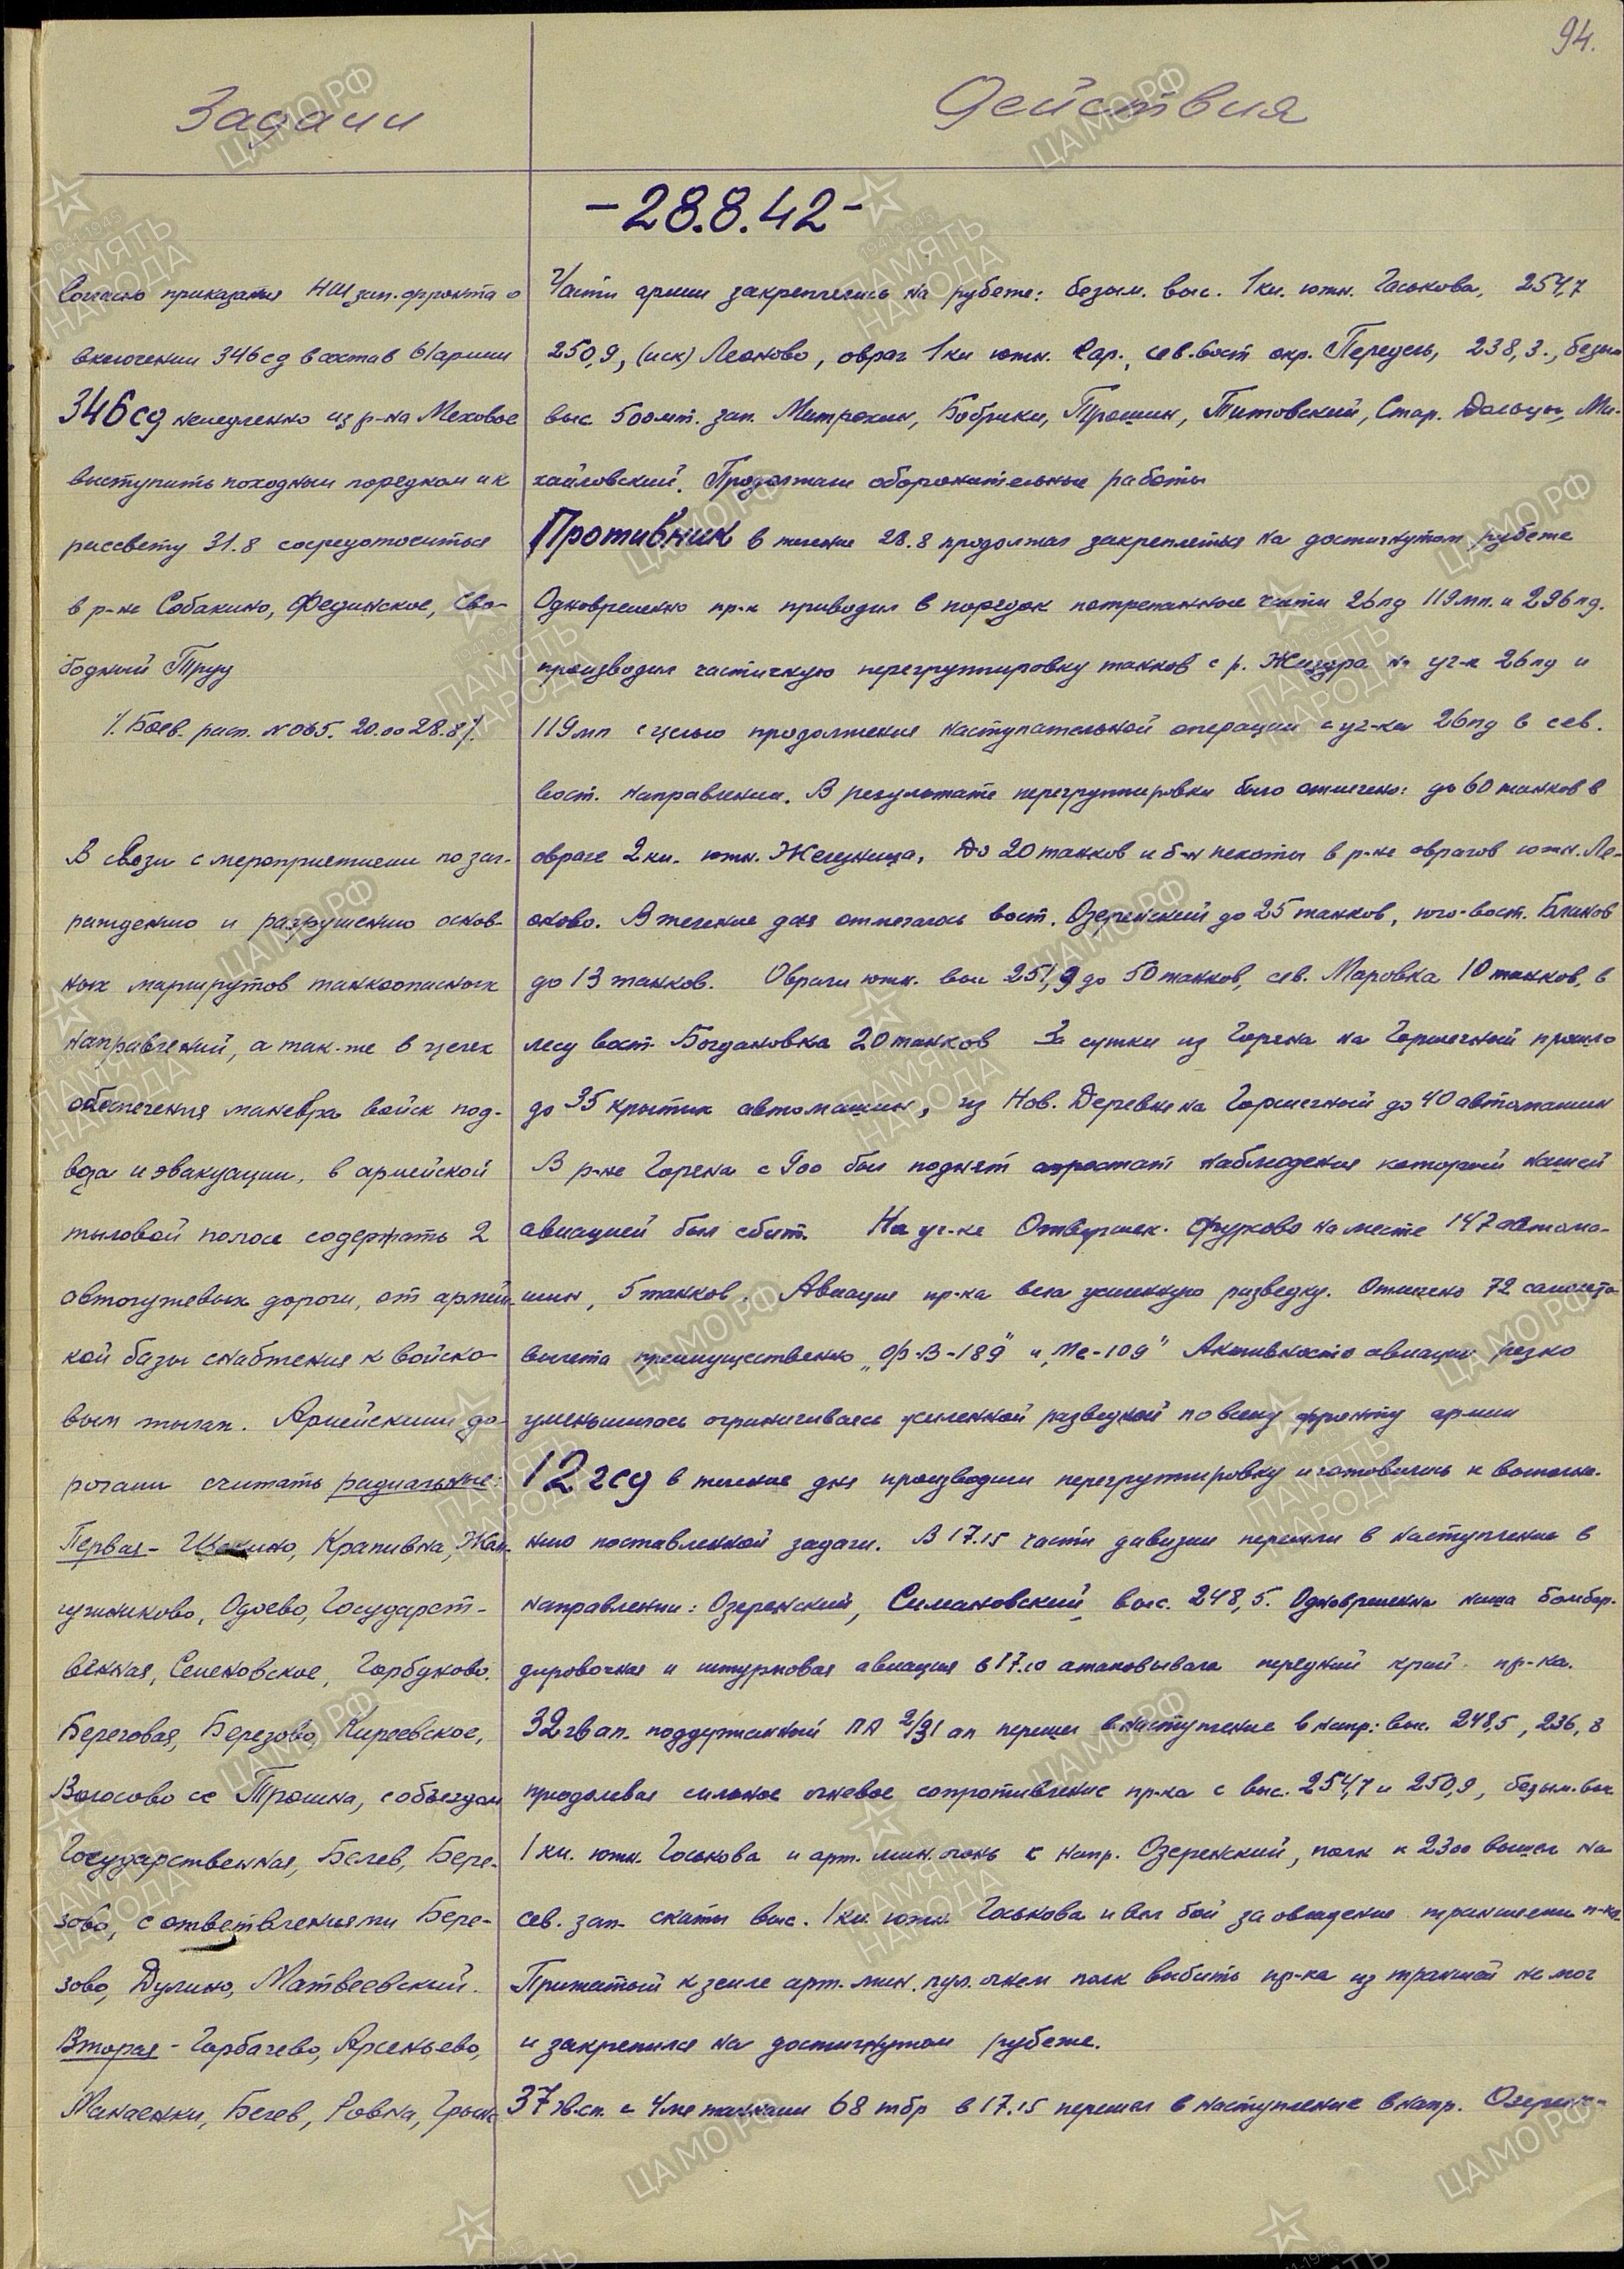 94.
Задачи
Действия
-28.8.42-
Согласно приказания НШ зап. фронта о
включении 346 сд в состав 61 армии
346 сд немедленно из р-на Меховое
выступить походным порядком и к
рассвету 31.8 сосредоточиться
в р-не Собакино, Фединское, Сво-
бодный Труд
/. Боев. расп. №065. 20.00 28.8/.
В связи с мероприятиями по заг-
раждению и разрушению основ-
ных маршрутов танкоопасных
направлений, а так-же в целях
обеспечения маневра войск под-
воза и эвакуации, в армейской
тыловой полосе содержать 2
автогужевых дороги, от армейс-
кой базы снабжения к войско-
вым тылам. Армейскими до-
рогами считать радиальные:
Первая - Щекино, Крапивна, Жем-
чужниково, Одоево, Государст-
венная, Семеновское, Горбуново.
Береговая, Березово, Киреевское,
Волосово сс Трошна, с объездом
Государственная, Белев, Бере-
зово, с ответвлениями Бере-
зово, Дулино, Матвеевский.
Вторая - Горбачево, Арсеньево,
Манаенки, Белев, Ровна,
Части армии закрепились на рубеже: безым. выс. 1 км. южн. Госькова, 254,7
250,9, (иск) Леоново, овраг 1 км южн. Сар., сев.-вост окр. Передель, 238,3., безым
выс 500 мт. зап. Митрохин, Бобрики, Трошин, Титовский, Стар. Дольцы, Ми-
хайловский. Продолжали оборонительные работы
Противник в течение 28.8 продолжал закрепляться на достигнутом рубеже
Одновременно пр-к приводил в порядок потрепанные части 26 пд 119 мп. и 296 пд.
производил частичную перегруппировку танков с р. Жиздра на уч-к 26 пд и
119 мп с целью продолжения наступательной операции с уч-ка 26 пд в сев.
вост. направлении. В результате перегруппировки было отмечено: до 60 танков в
овраге 2 км. южн. Железница, До 20 танков и б-н пехоты в р-не оврагов южн. Ле-
оново. В течение дня отмечалось вост. Озеренский до 25 танков, юго-вост. Блинов
до 13 танков. Овраги южн. выс 251,9 до 50 танков, сев. Маровка 10 танков, в
лесу вост. Богдановка 20 танков За сутки из Горена на Горшечный прошло
до 35 крытых автомашин, из Нов. Деревня на Горшечный до 40 автомашин
В р-не Горена с 9 00 был поднят аэростат наблюдения который нашей
авиацией был сбит. На уч-ке Отвершек. Фурсово на месте 147 автома-
шин, 5 танков. Авиация пр-ка вела усиленную разведку. Отмечено 72 самолето-
вылета преимущественно „ФВ-189" и „Ме-109" Активность авиации резко
уменьшилась ограничиваясь усиленной разведкой по всему фронту армии
12 гсд в течение дня производили перегруппировку и готовились к выполне-
нию поставленной задачи. В 17.15 части дивизии перешли в наступление в
направлении: Озеренский, Симановский, выс. 248,5. Одновременно наша бомбар-
дировочная и штурмовая авиация в 17.10 атаковывала передний край пр-ка.
32 гв ап. поддержанный ПА 2/31 ап перешел в наступление в напр: выс. 248,5, 236,8
преодолевая сильное огневое сопротивление пр-ка с выс. 254,7 и 250,9, безым. выс
1 км. южн. Госькова и арт. мин. огонь с напр. Озеренский, полк к 23 00 вышел на
сев. зап. скаты выс. 1 км. южн. Госькова и вел бой за овладение траншеями п-ка.
Прижатый к земле арт. мин. пул. огнем полк выбить пр-ка из траншей не мог
и закрепился на достигнутом рубеже.
37 гв.сп. с 4мя танками 68 тбр в 17.15 перешел в наступление в напр. Озерен-